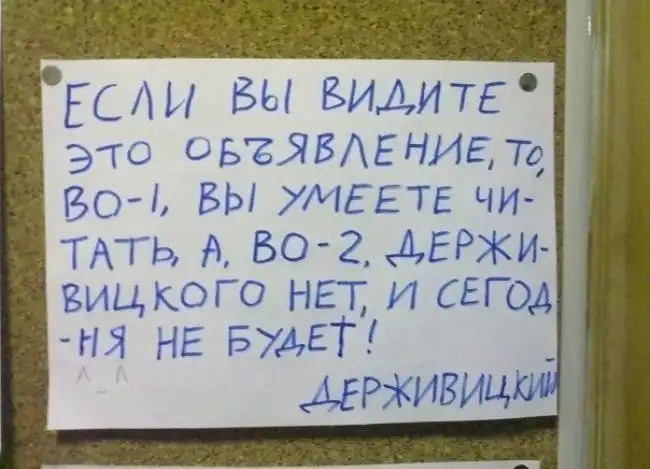 ЕСЛИ ВЫ ВИДИТЕ
ЭТО ОБЪЯВЛЕНИЕ, ТО,
ВО-1, ВЫ УМЕЕТЕ ЧИ-
ТАТЬ, А, ВО-2, ДЕРЖИ-
ВИЦКОГО НЕТ, И СЕГОД
-НЯ НЕ БУДЕТ!
^_^
ДЕРЖИВИЦКИЙ